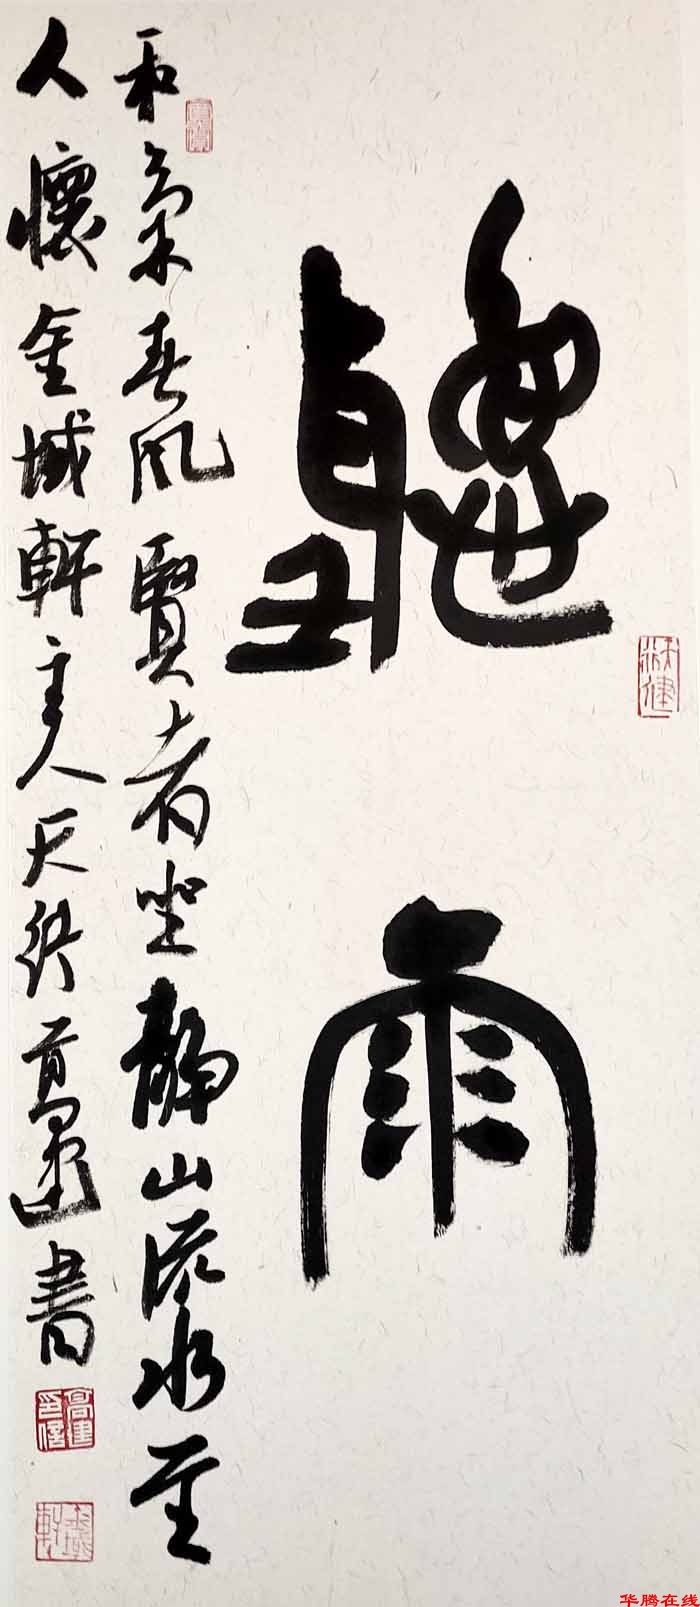 聽雨
和氣春風賢者坐靜山流水至
人懷金城軒主人天行高建書
华腾在线